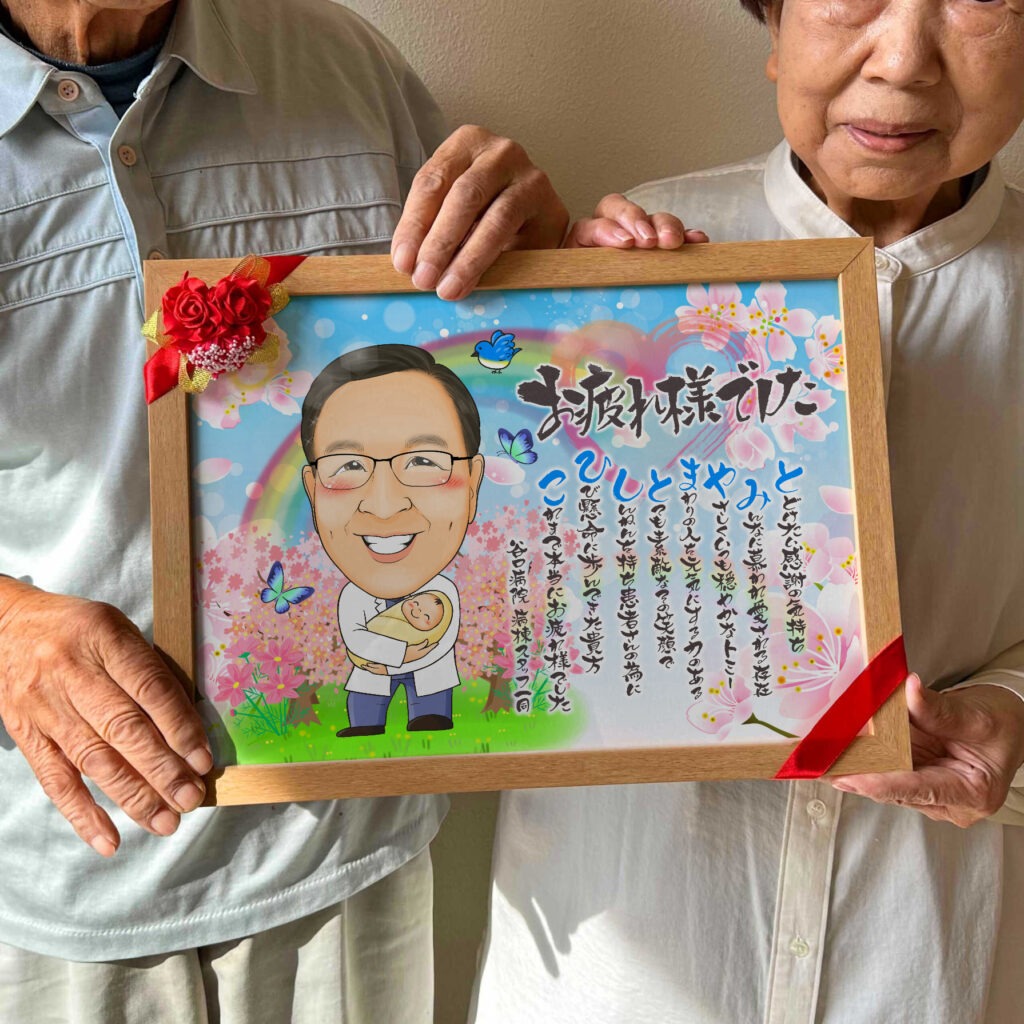 お疲れ様でした
とどけたい感謝の気持ち
みんなに慕われ愛される存在
やさしくいつも穏やかなトミー
まわりの人を元気にする力のある
とても素敵なその笑顔で
しんねんを持ち患者さんの為に
ひび懸命に歩んできた貴方
これまで本当にお疲れ様でした
谷口病院 病棟スタッフ一同